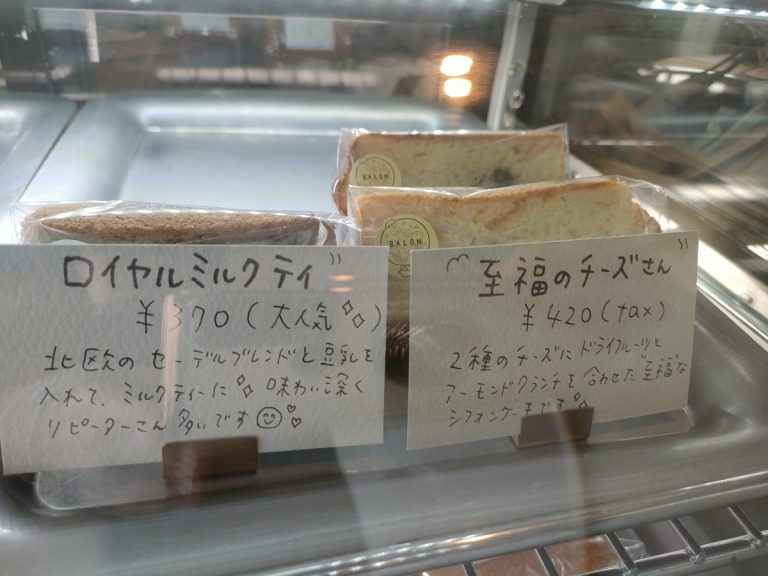 BALON
BALON
ロイヤルミルクティ
¥370(大人気)
北欧のセーデルブレンドと豆乳を
入れて、ミルクティーに 味わい深く
リピーターさん多いです
至福のチーズさん
¥420(tax)
2種のチーズにドライフルーツと
アーモンドクランチを合わせた"至福"な
シフォンケーキです